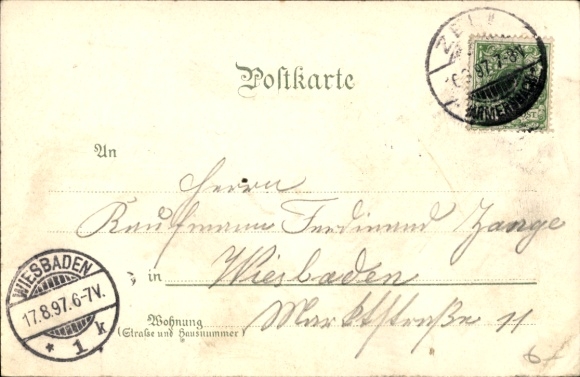 ZELL
97.7-8V.
Postkarte
An
Herrn
Kaufmann Ferdinand Zange
in Wiesbaden
Wohnung Marktstraße 11
(Straße und Hausnummer)
WIESBADEN
17.8.97.6-7V.
* 1 k